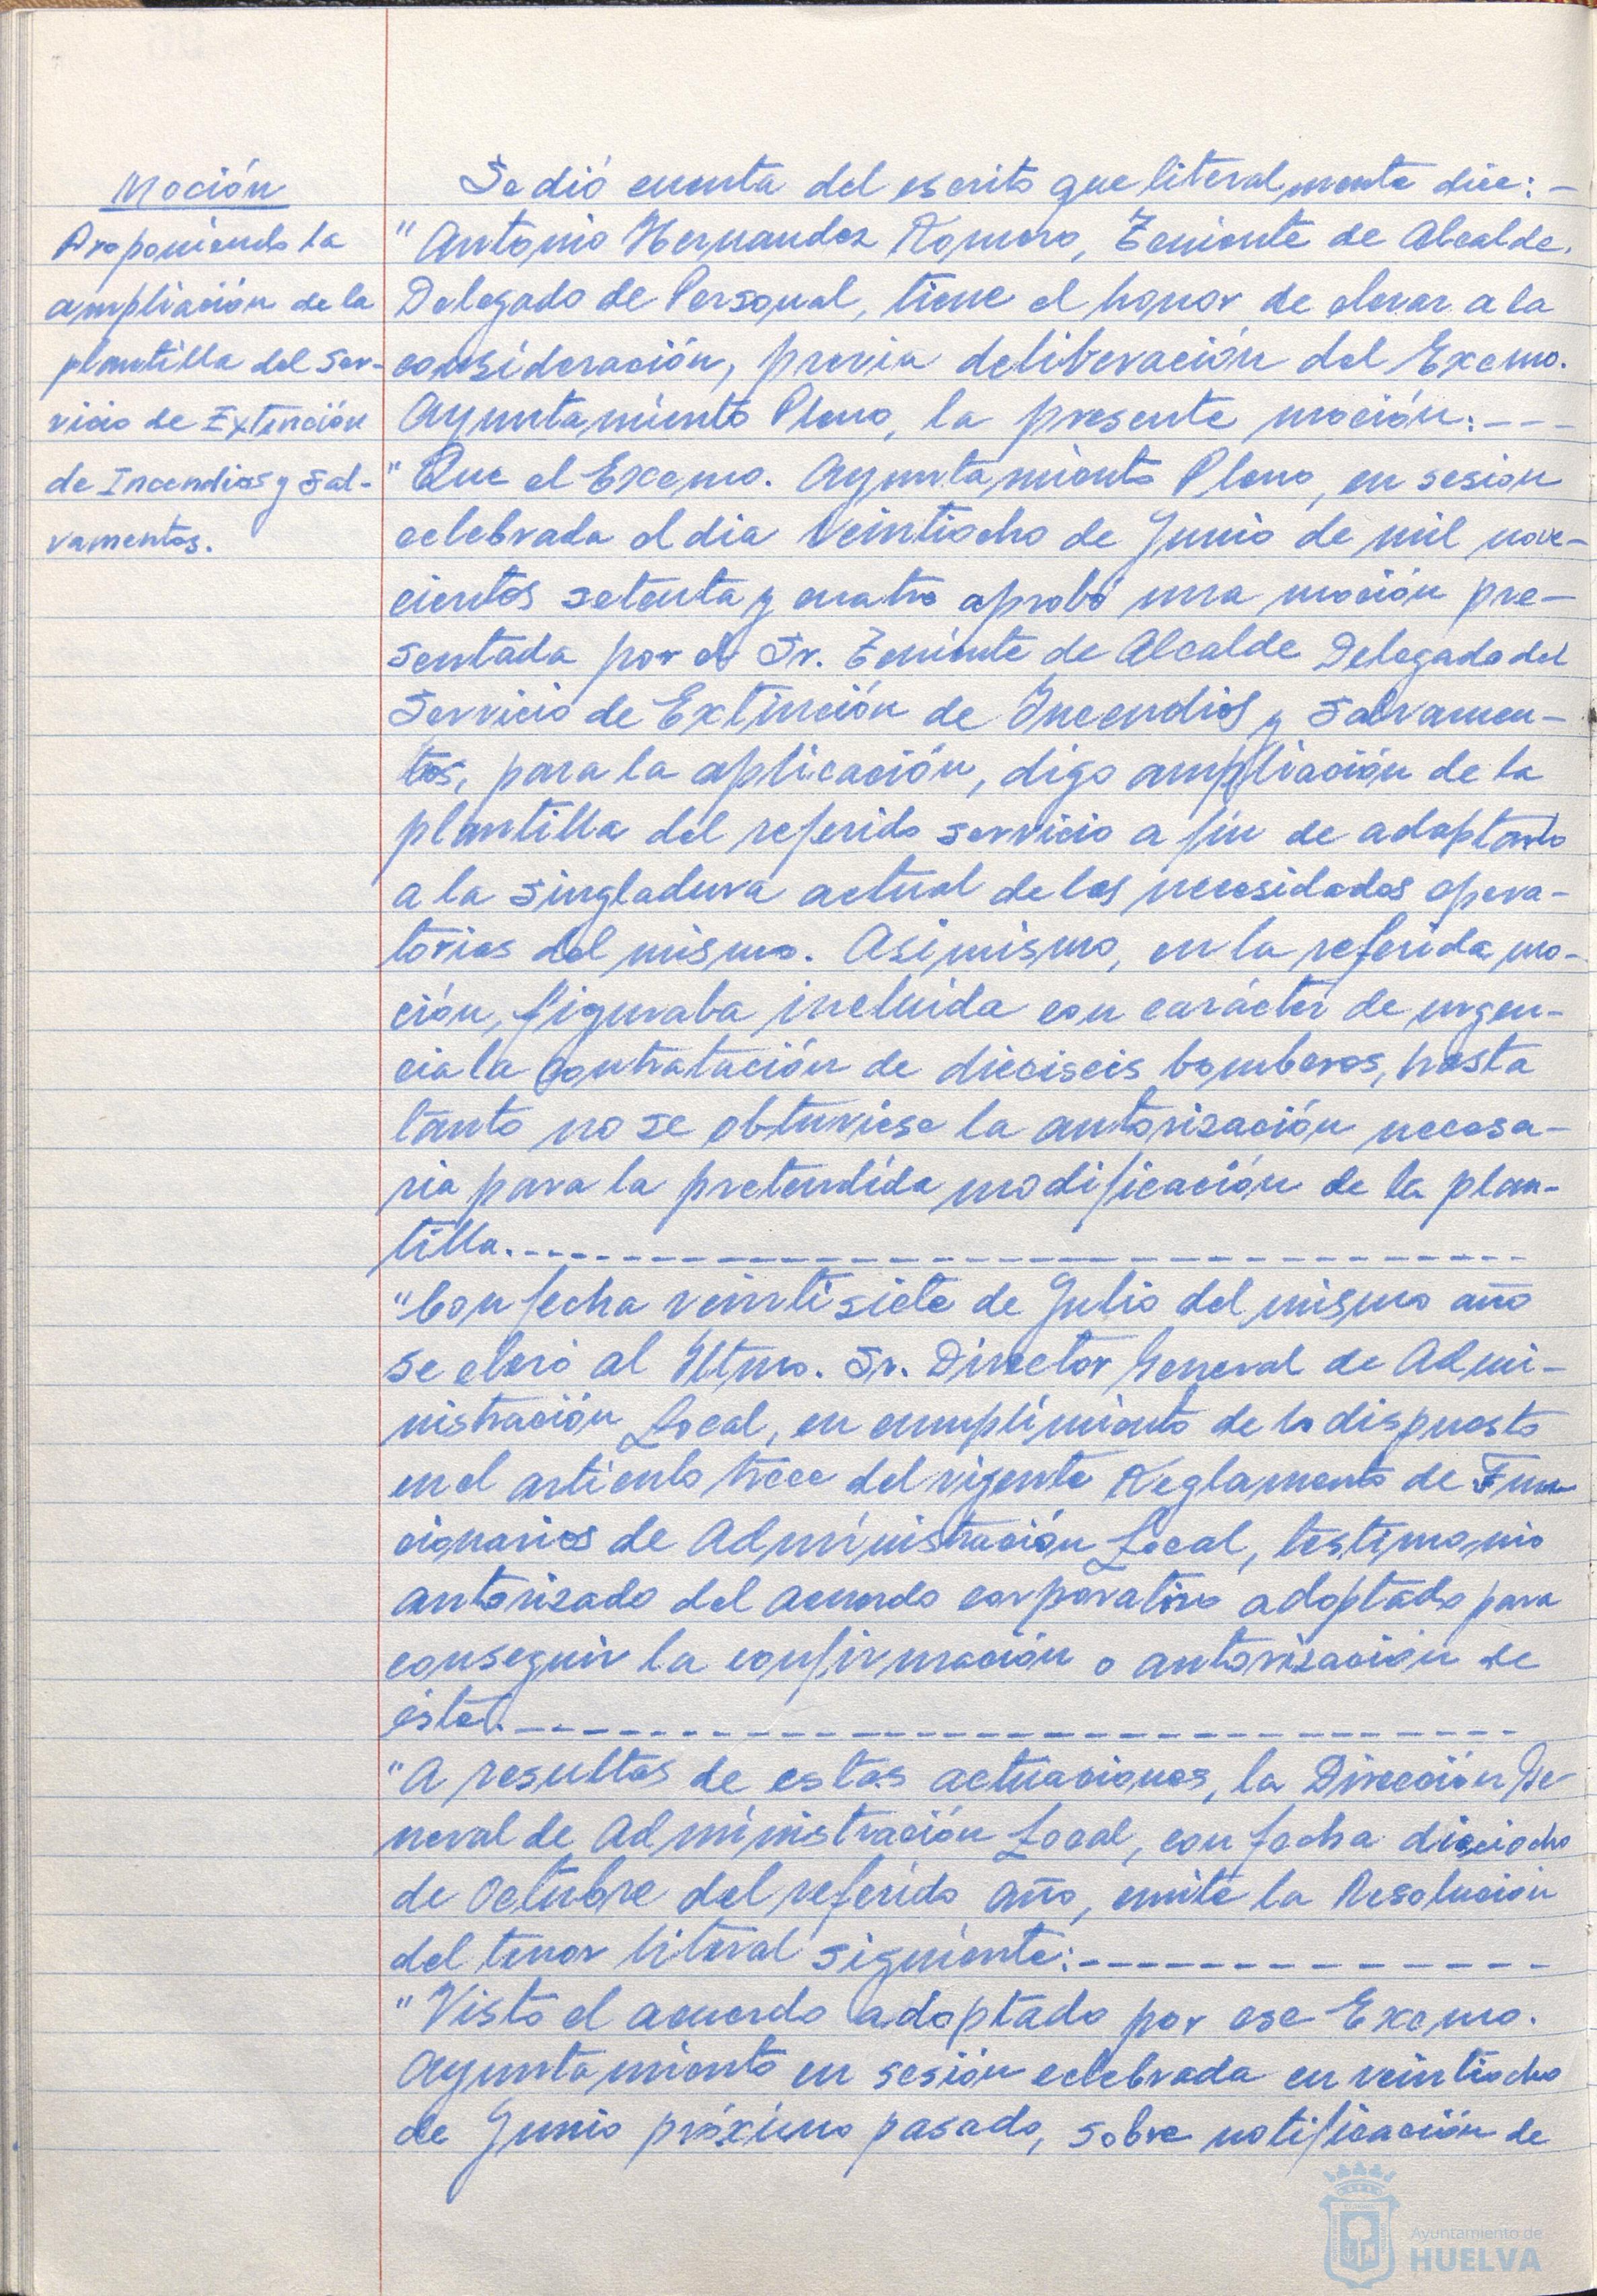 Moción
Proponiendo la
ampliación de la
plantilla del Ser-
vicio de Extinción
de Incendios y Sal-
vamentos.
Se dió cuenta del escrito que literalmente dice: -
"Antonio Hernandez Romero, Teniente de Alcalde.
Delegado de Personal, tiene el honor de elevar a la
consideración, previa deliberación del Excmo.
Ayuntamiento Pleno, la presente moción: - - -
"Que el Excmo. Ayuntamiento Pleno, en sesion
celebrada el dia veintiocho de Junio de mil nove-
cientos setenta y cuatro aprobó una moción pre-
sentada por el Sr. Teniente de Alcalde Delegado del
Servicio de Extinción de Incendios y Salvamen-
tos, para la aplicación, digo ampliación de la
plantilla del referido servicio a fin de adaptarlo
a la singladura actual de las necesidades opera-
torias del mismo. Asimismo, en la referida mo-
ción, figuraba incluida con carácter de urgen-
cia la contratación de dieciseis bomberos, hasta
tanto no se obtuviese la autorización necesa-
ria para la pretendida modificación de la plan-
tilla. - - - - - - - - - - - - - - - - - - - -
"Con fecha veintisiete de Julio del mismo año
se elevó al Iltmo. Sr. Director General de Admi-
nistración Local, en cumplimiento de lo dispuesto
en el articulo trece del vigente Reglamento de Fun
cionarios de Administración Local, testimonio
autorizado del acuerdo corporativo adoptado para
conseguir la confirmación o autorización de
éste. - - - - - - - - - - - - - - - - - - - -
"A resultas de estas actuaciones, la Dirección Ge
neral de Administración Local, con fecha dieciocho
de Octubre del referido año, emite la Resolución
del tenor literal siguiente: - - - - - - - - - -
"Visto el acuerdo adoptado por ese Excmo.
Ayuntamiento en sesión celebrada en veintiocho
de Junio próximo pasado, sobre notificación de
Ayuntamiento de
HUELVA